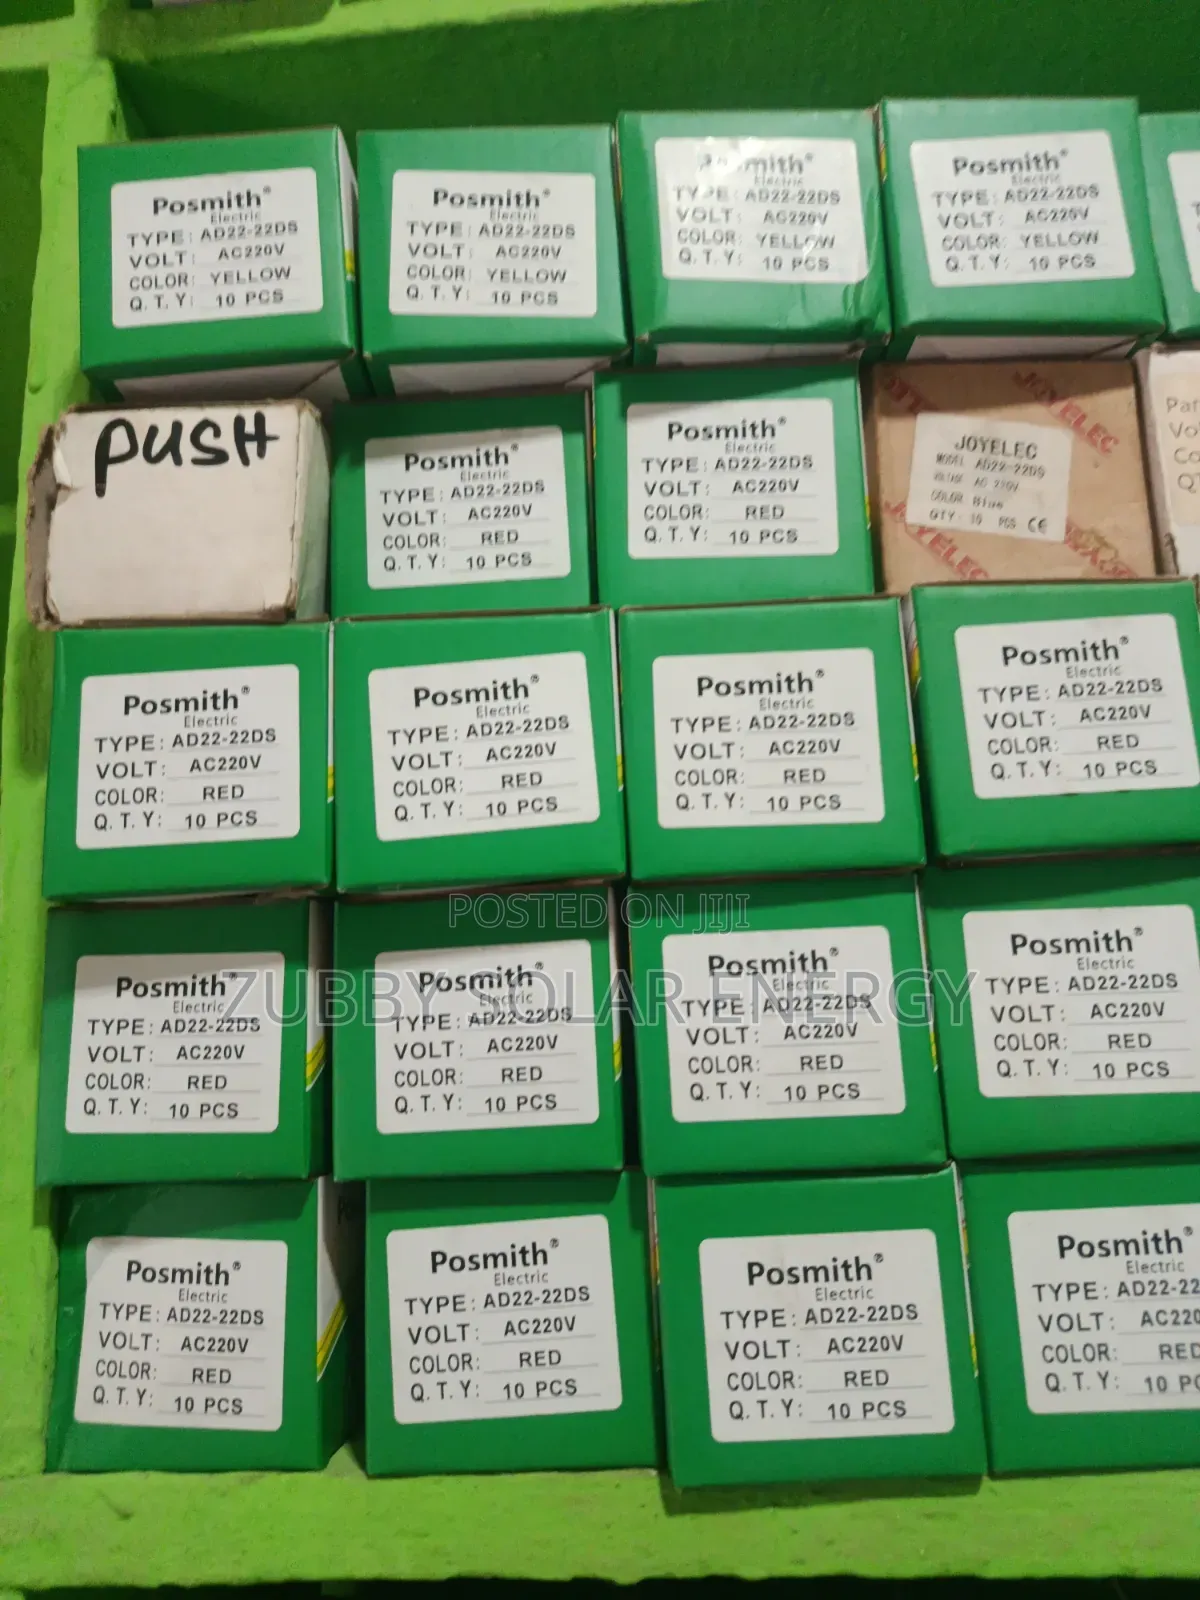 Posmith®
Electric
TYPE: AD22-22DS
VOLT: AC220V
COLOR: YELLOW
Q.T.Y: 10 PCS
Posmith®
Electric
TYPE: AD22-22DS
VOLT: AC220V
COLOR: YELLOW
Q.T.Y: 10 PCS
Posmith®
Electric
TYPE: AD22-22DS
VOLT: AC220V
COLOR: YELLOW
Q.T.Y: 10 PCS
Posmith®
Electric
TYPE: AD22-22DS
VOLT: AC220V
COLOR: YELLOW
Q.T.Y: 10 PCS
PUSH
Posmith®
Electric
TYPE: AD22-22DS
VOLT: AC220V
COLOR: RED
Q.T.Y: 10 PCS
Posmith®
Electric
TYPE: AD22-22DS
VOLT: AC220V
COLOR: RED
Q.T.Y: 10 PCS
JOYELEC
JOYELEC
MODEL AD22-22DS
AC 220V
COLOR Blue
QTY: 10 PCS CE
JOYELEC
Posmith®
Electric
TYPE: AD22-22DS
VOLT: AC220V
COLOR: RED
Q.T.Y: 10 PCS
Posmith®
Electric
TYPE: AD22-22DS
VOLT: AC220V
COLOR: RED
Q.T.Y: 10 PCS
Posmith®
Electric
TYPE: AD22-22DS
VOLT: AC220V
COLOR: RED
Q.T.Y: 10 PCS
Posmith®
Electric
TYPE: AD22-22DS
VOLT: AC220V
COLOR: RED
Q.T.Y: 10 PCS
POSTED ON JIJI
ZUBBY SOLAR ENERGY
Posmith®
Electric
TYPE: AD22-22DS
VOLT: AC220V
COLOR: RED
Q.T.Y: 10 PCS
Posmith®
Electric
TYPE: AD22-22DS
VOLT: AC220V
COLOR: RED
Q.T.Y: 10 PCS
Posmith®
Electric
TYPE: AD22-22DS
VOLT: AC220V
COLOR: RED
Q.T.Y: 10 PCS
Posmith®
Electric
TYPE: AD22-22DS
VOLT: AC220V
COLOR: RED
Q.T.Y: 10 PCS
Posmith®
Electric
TYPE: AD22-22DS
VOLT: AC220V
COLOR: RED
Q.T.Y: 10 PCS
Posmith®
Electric
TYPE: AD22-22DS
VOLT: AC220V
COLOR: RED
Q.T.Y: 10 PCS
Posmith®
Electric
TYPE: AD22-22DS
VOLT: AC220V
COLOR: RED
Q.T.Y: 10 PCS
Posmith®
Electric
TYPE: AD22-22
VOLT: AC220
COLOR: RED
Q.T.Y: 10 PC